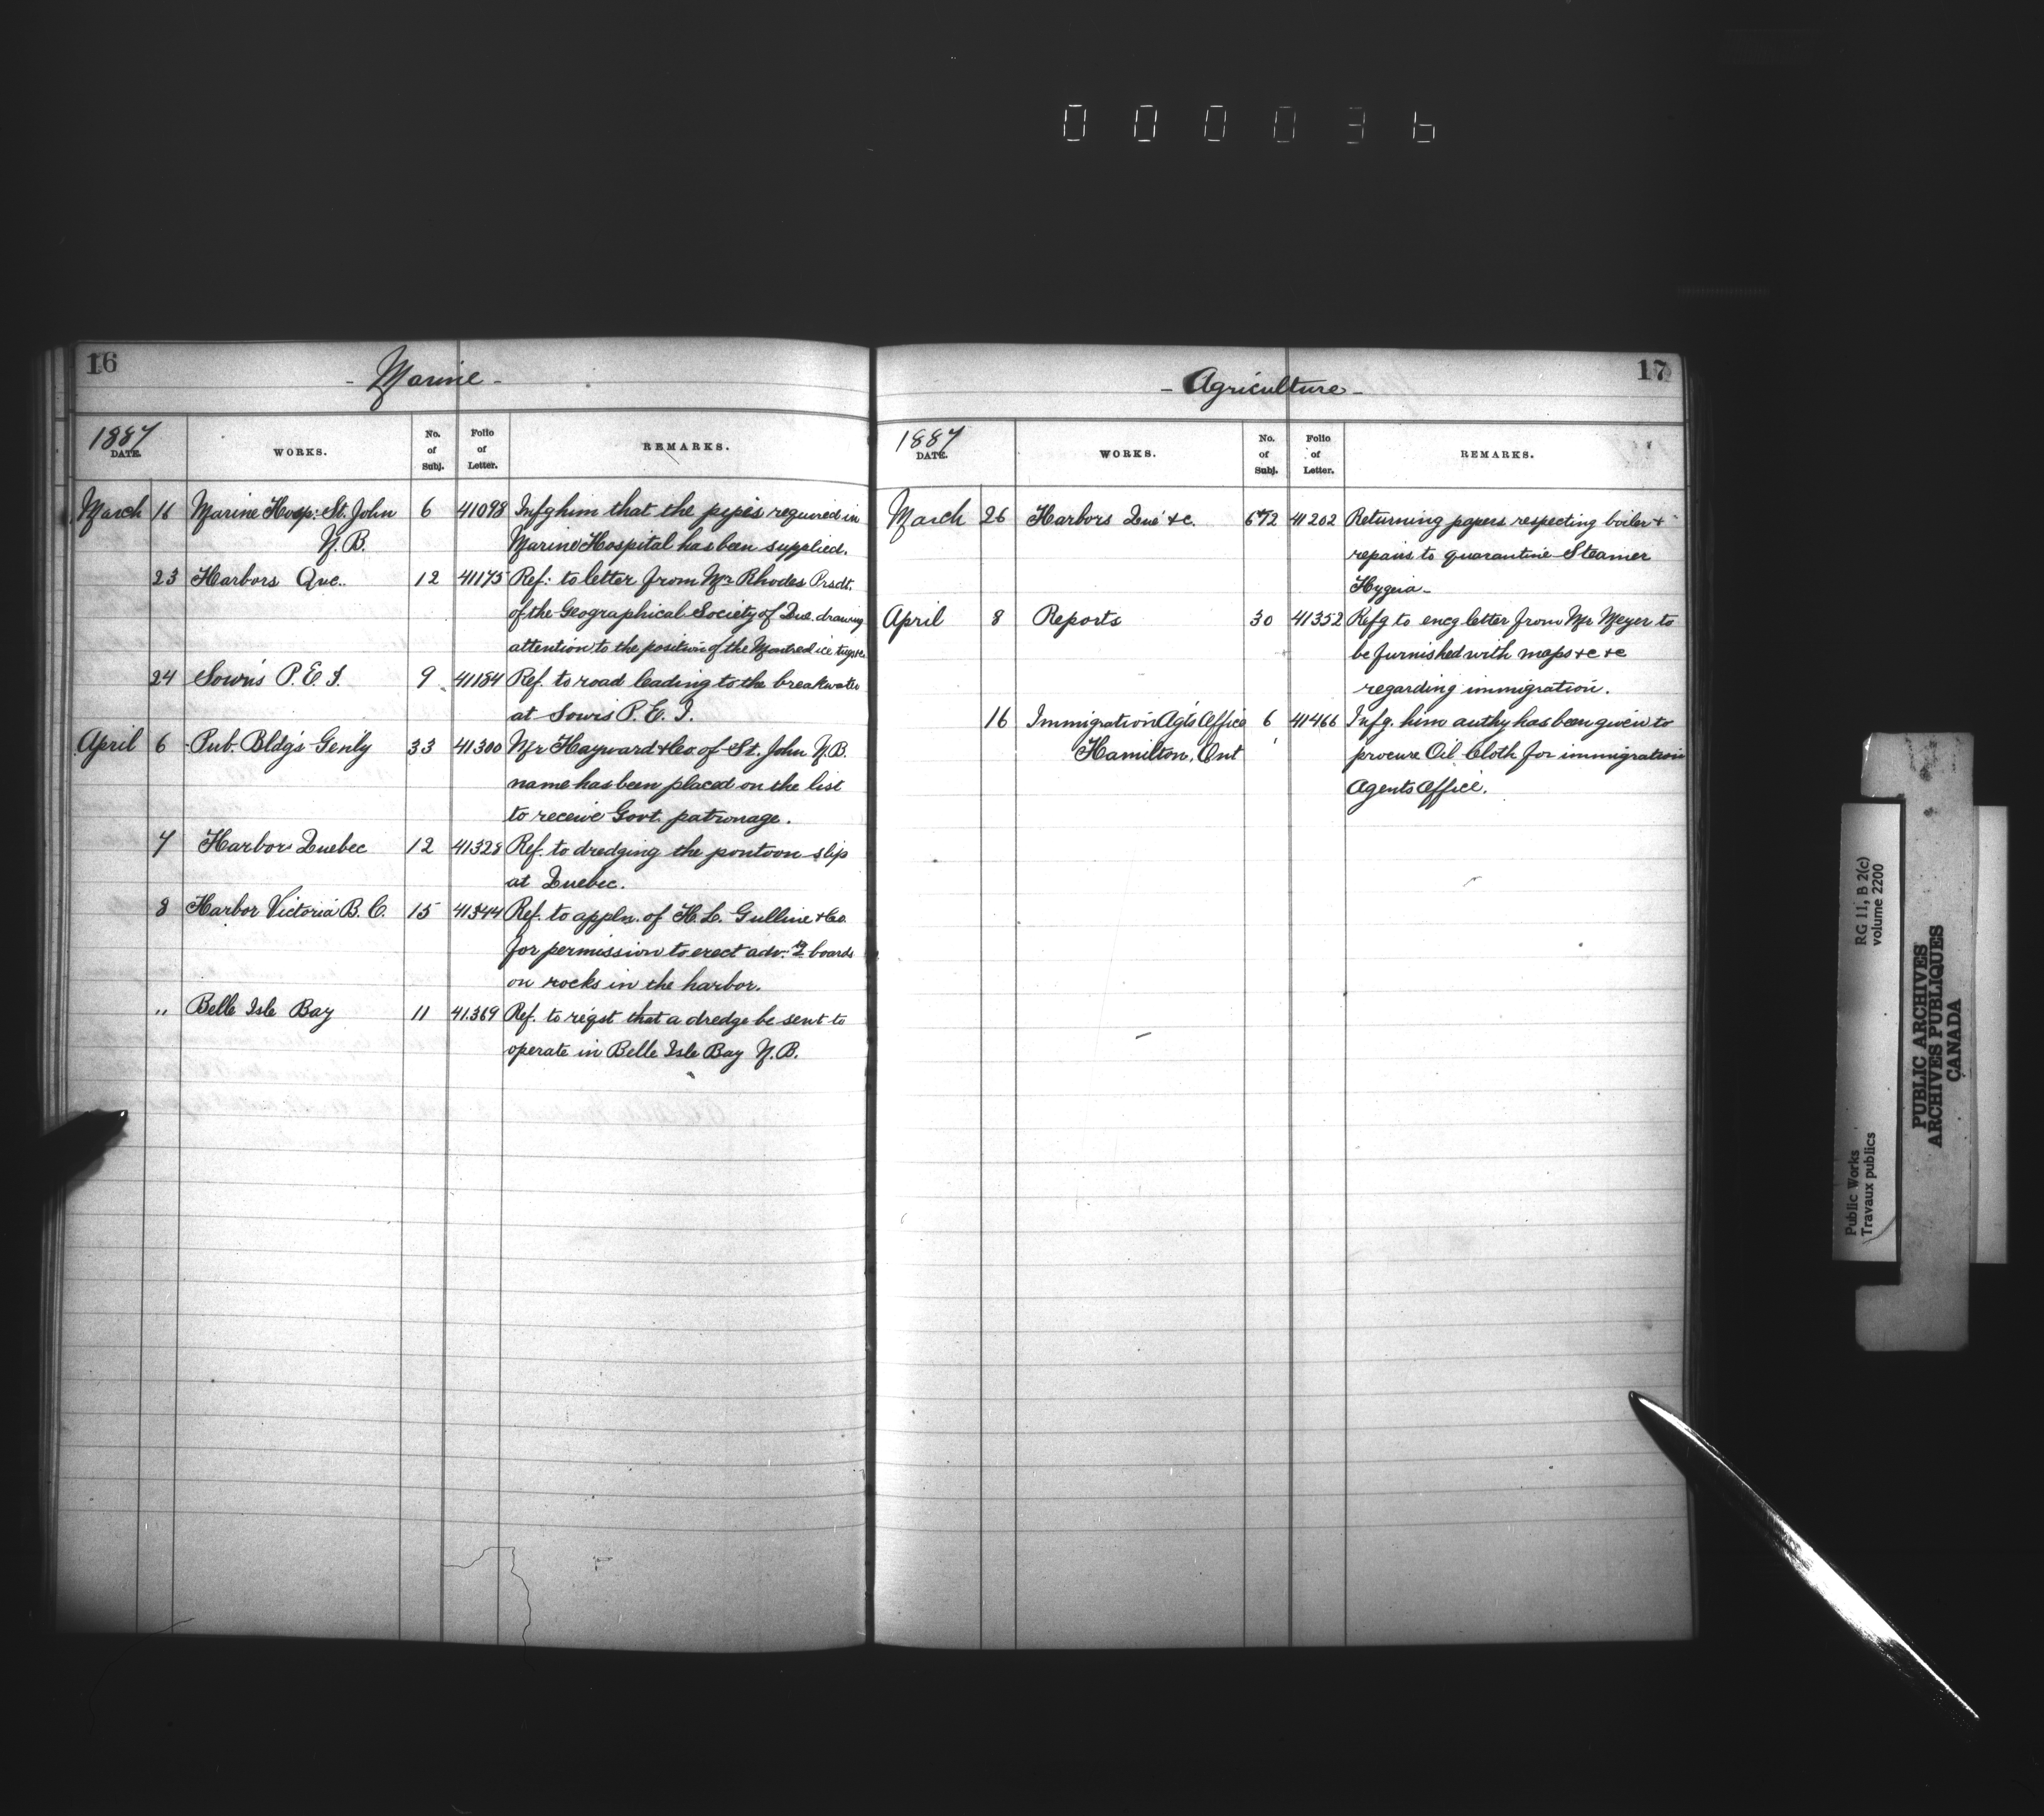 000036
16
- Marine -
1887
DATE.
WORKS.
No. of Subj.
Folio of Letter.
REMARKS.
March 16 Marine Hosp: St. John 6 41098 Infg him that the pipes required in
N.B. Marine Hospital has been supplied.
23 Harbors Que.. 12 41175 Ref: to letter from Mr Rhodes Prsdt.
of the Geographical Society of Que. drawing
attention to the position of the Montreal ice
24 Souris P.E.I. 9 41184 Ref. to road leading to the breakwater
at Souris P.E.I.
April 6 Pub. Bldg's Gen'ly 33 41300 Mr Hayward & Co. of St. John N.B.
name has been placed on the list
to receive Govt. patronage.
7 Harbors Quebec 12 41328 Ref. to dredging the pontoon slip
at Quebec.
8 Harbor Victoria B.C. 15 41344 Ref. to appln. of H.L. Gulline & Co.
for permission to erect adv:g boards
on rocks in the harbor.
" Belle Isle Bay 11 41369 Ref. to reqst that a dredge be sent to
operate in Belle Isle Bay N.B.
17
- Agriculture -
1887
DATE.
WORKS.
No. of Subj.
Folio of Letter.
REMARKS.
March 26 Harbors Que &c. 672 41202 Returning papers respecting boiler &
repairs to quarantine Steamer
Hygeia -
April 8 Reports 30 41352 Refg to encg letter from Mr Meyer to
be furnished with maps &c &c
regarding immigration.
16 Immigration Agt's Office 6 41466 Infg. him authy has been given to
Hamilton, Ont procure Oil Cloth for immigration
Agents Office.
Public Works
Travaux publics
RG 11, B 2(c)
volume 2200
PUBLIC ARCHIVES
ARCHIVES PUBLIQUES
CANADA